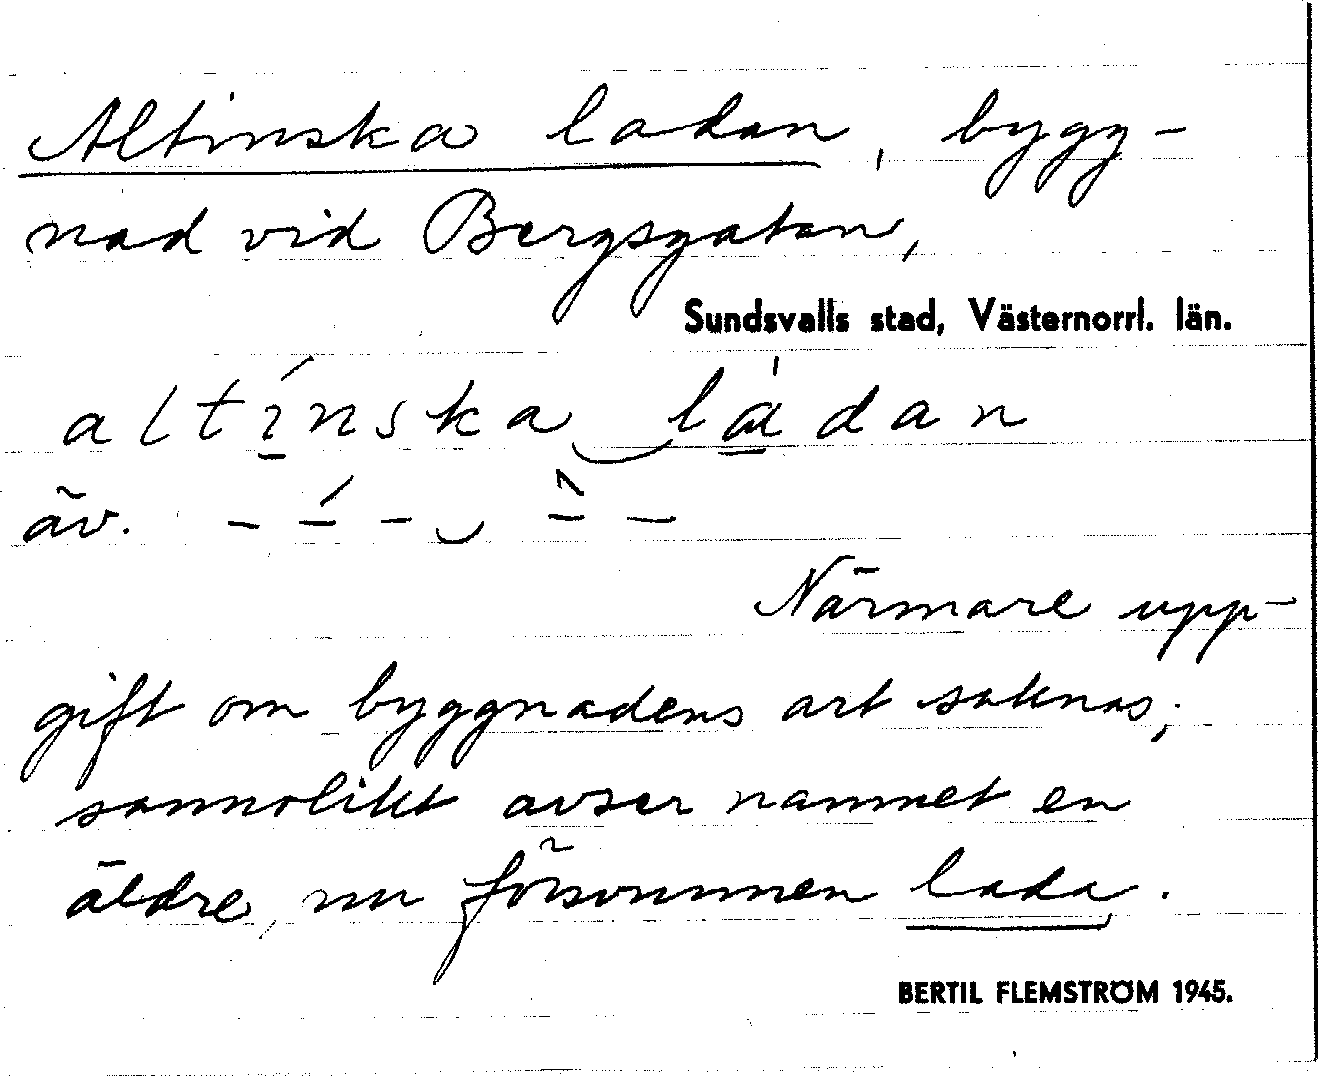 Altinska ladan, bygg-
nad vid Bergsgatan,
Sundsvalls stad, Västernorrl. län.
altínska ladan
äv.
Närmare upp-
gift om byggnadens art saknas;
sannolikt avser namnet en
äldre, nu försvunnen lada.
BERTIL FLEMSTRÖM 1945.